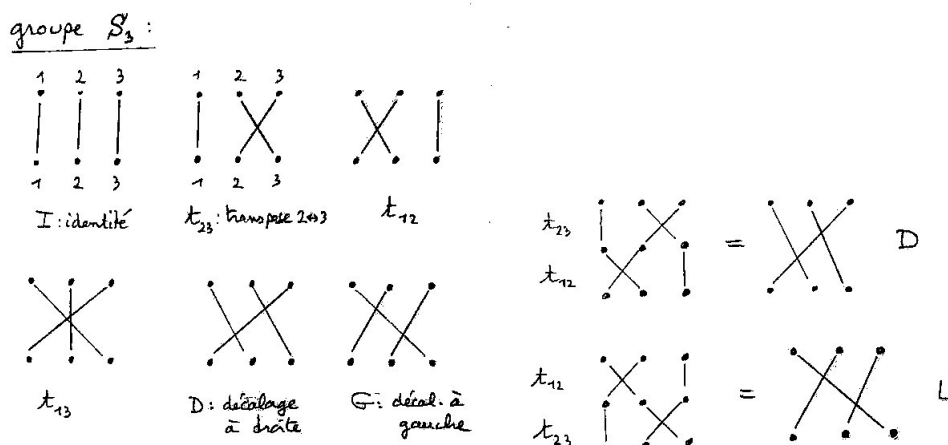 groupe S₃ :
1 2 3
1 2 3
1 2 3
1 2 3
I : identité
t₂₃ : transpose 2↔3
t₁₂
t₁₃
D : décalage
à droite
G : décal. à
gauche
t₂₃
t₁₂
= D
t₁₂
t₂₃
= L